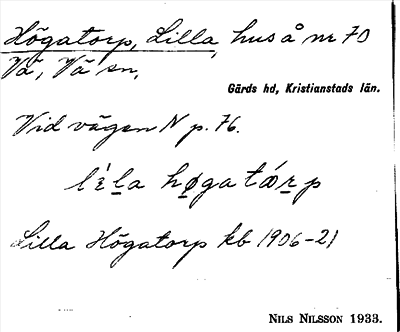 Högatorp, Lilla, hus å nr 70
Vä, Vä sn,
Gärds hd, Kristianstads län.
Vid vägen N p. 76.
lì̱ḻa hø̱gató̱ṟp
Lilla Högatorp kb 1906-21
NILS NILSSON 1933.